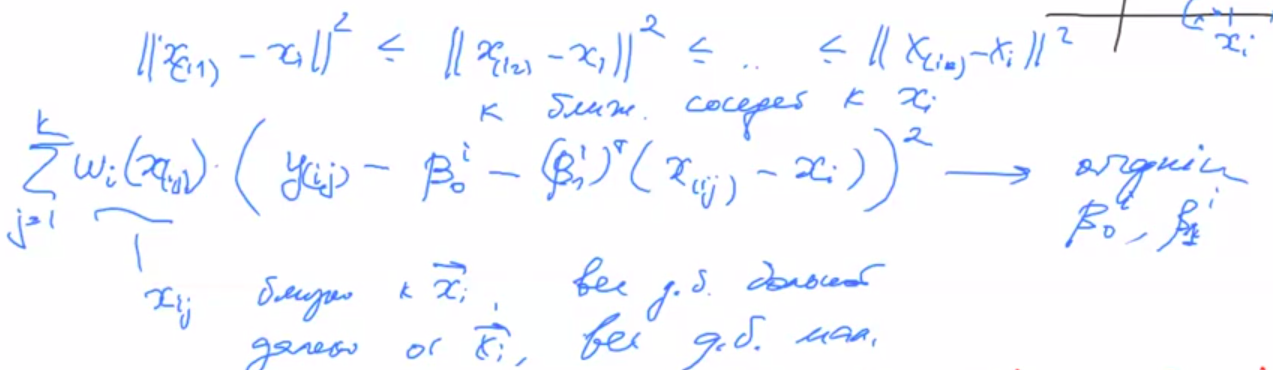 ‖x₍ᵢ₁₎ − xᵢ‖² ≤ ‖x₍ᵢ₂₎ − xᵢ‖² ≤ .. ≤ ‖x₍ᵢₖ₎ − xᵢ‖²
xᵢ
k ближ. соседей к xᵢ
∑ⱼ₌₁ᵏ wᵢ(x₍ᵢⱼ₎) · (y₍ᵢⱼ₎ − β₀ⁱ − (β₁ⁱ)ᵀ(x₍ᵢⱼ₎ − xᵢ))² → argmin
β₀ⁱ, β₁ⁱ
xᵢⱼ близко к x⃗ᵢ, вес д.б. большой
далеко от x⃗ᵢ, вес д.б. мал.